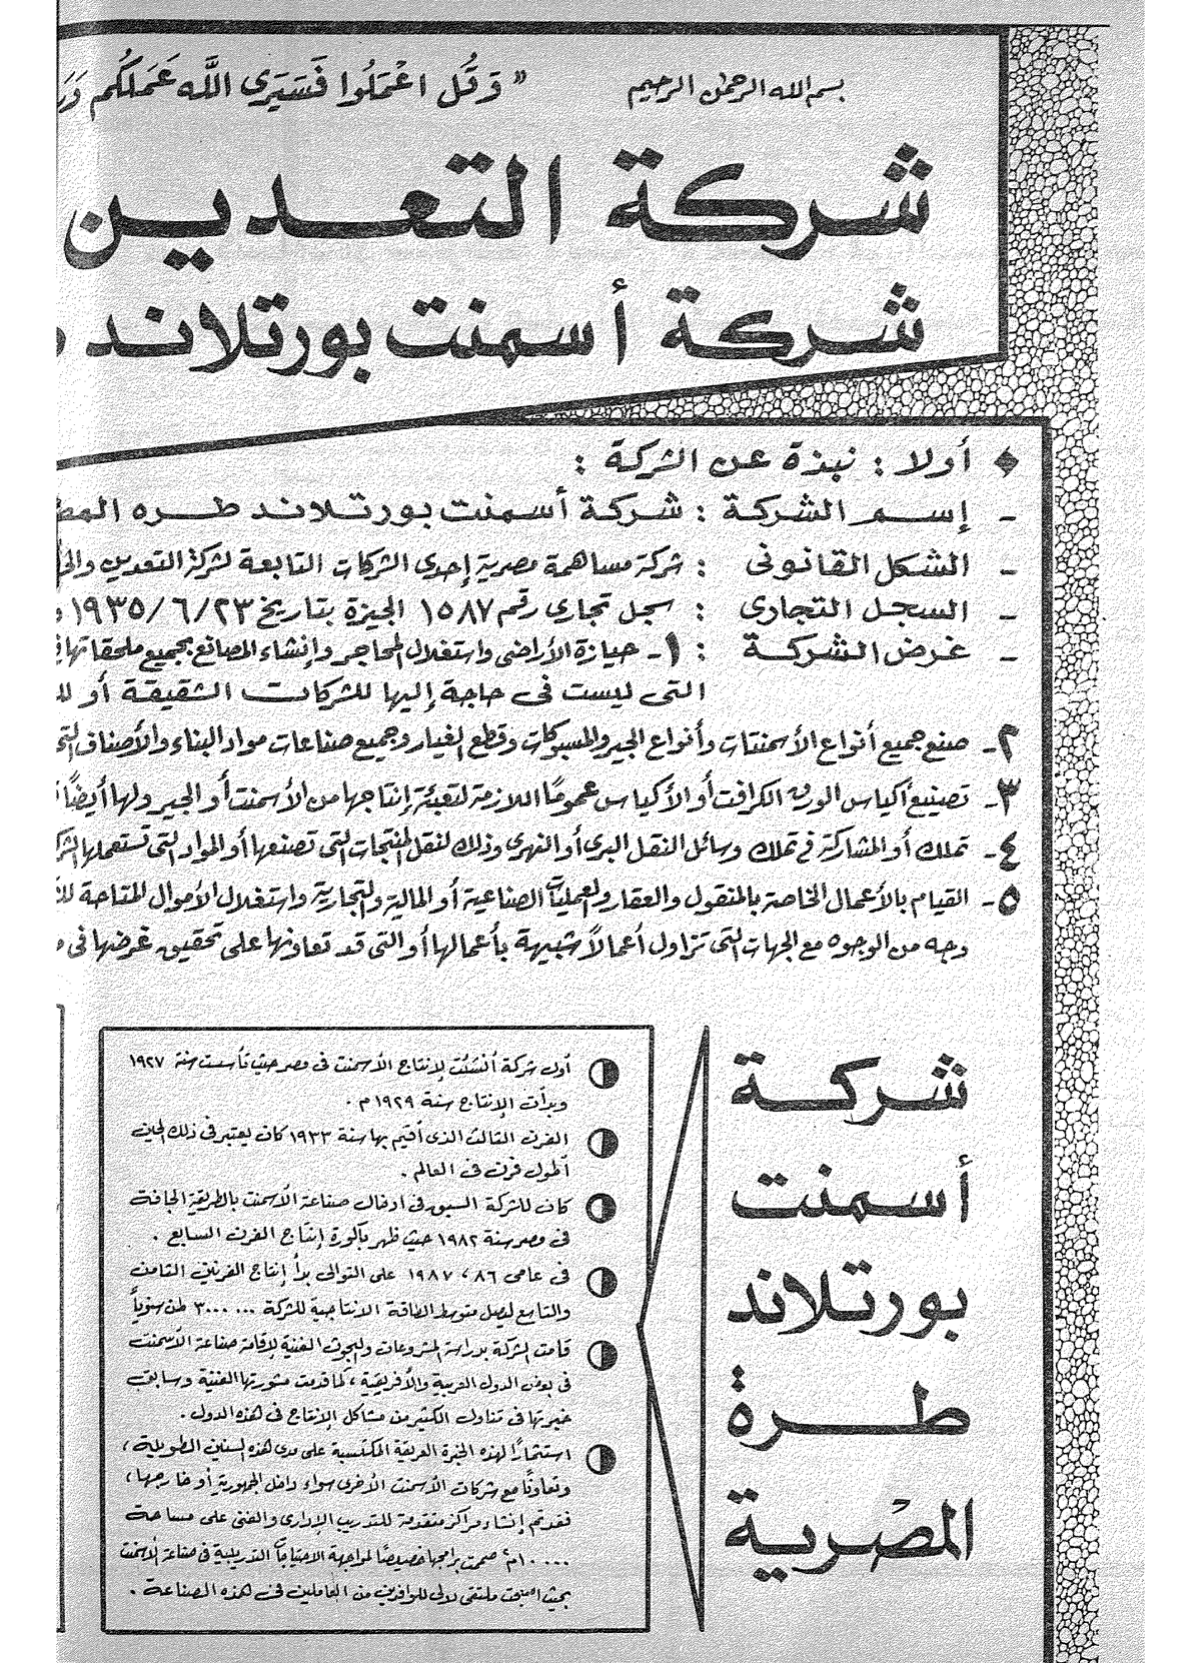 بسم الله الرحمن الرحيم
« وَقُل اعْمَلُوا فَسَيَرَى اللَّه عَمَلَكُم
شركة التعدين
شركة أسمنت بورتلاند
أولا : نبذة عن الشركة :
- إسم الشركة : شركة أسمنت بورتلاند طره
- الشكل القانونى : شركة مساهمة مصرية إحدى الشركات التابعة لشركة التعدين
- السجل التجارى : سجل تجارى رقم ١٥٨٧ الجيزة بتاريخ ١٩٣٥/٦/٢٣
- غرض الشركة : ١- حيازة الأراضى واستغلال المحاجر وإنشاء المصانع بجميع ملحقاتها
التى ليست فى حاجة إليها للشركات الشقيقة أو
٢- صنع جميع أنواع الأسمنتات وأنواع الجير والمسبوكات وقطع الغيار وجميع صناعات مواد البناء والأصناف
٣- تصنيع أكياس الورق الكرافت أو الأكياس عمومًا اللازمة لتعبئة إنتاجها من الأسمنت أو الجير ولها أيضًا
٤- تملك أو المشاركة فى تملك وسائل النقل البرى أو النهرى وذلك لنقل المنتجات التى تصنعها أو المواد التى تستعملها
٥- القيام بالأعمال الخاصة بالمنقول والعقار والعمليات الصناعية أو المالية والتجارية واستغلال الأموال المتاحة
وجه من الوجوه مع الجهات التى تزاول أعمالاً شبيهة بأعمالها أو التى قد تعاونها على تحقيق غرضها فى
شركة
أسمنت
بورتلاند
طرة
المصرية
أول شركة أنشئت لإنتاج الأسمنت فى مصر حيث تأسست سنة ١٩٢٧
وبدأت الإنتاج سنة ١٩٢٩ م .
الفرن الثالث الذى أقيم بها سنة ١٩٣٣ كان يعتبر فى ذلك الحين
أطول فرن فى العالم .
كان للشركة السبق فى ادخال صناعة الأسمنت بالطريقة الجافة
فى مصر سنة ١٩٨٢ حيث ظهر باكورة إنتاج الفرن السابع .
فى عامى ٨٦ ، ١٩٨٧ على التوالى بدأ إنتاج الفرنين الثامن
والتاسع ليصل متوسط الطاقة الانتاجية للشركة ٣٠٠٠٠٠٠ طن سنوياً
قامت الشركة بدراسة المشروعات والبحوث الفنية لإقامة صناعة الأسمنت
فى بعض الدول العربية والأفريقية ، كما قدمت مشورتها الفنية وسابق
خبرتها فى تناول الكثير من مشاكل الإنتاج فى هذه الدول .
استثمارًا لهذه الخبرة العريقة المكتسبة على مدى هذه السنين الطويلة ،
وتعاونًا مع شركات الأسمنت الأخرى سواء داخل الجمهورية أو خارجها ،
فقد تم إنشاء مراكز متقدمة للتدريب الإدارى والفنى على مساحة
١٠٠٠٠م٢ صممت برامجها خصيصًا لمواجهة الاحتياجات التدريبية فى صناعة الأسمنت
بحيث أصبحت ملتقى للوافدين من العاملين فى هذه الصناعة .